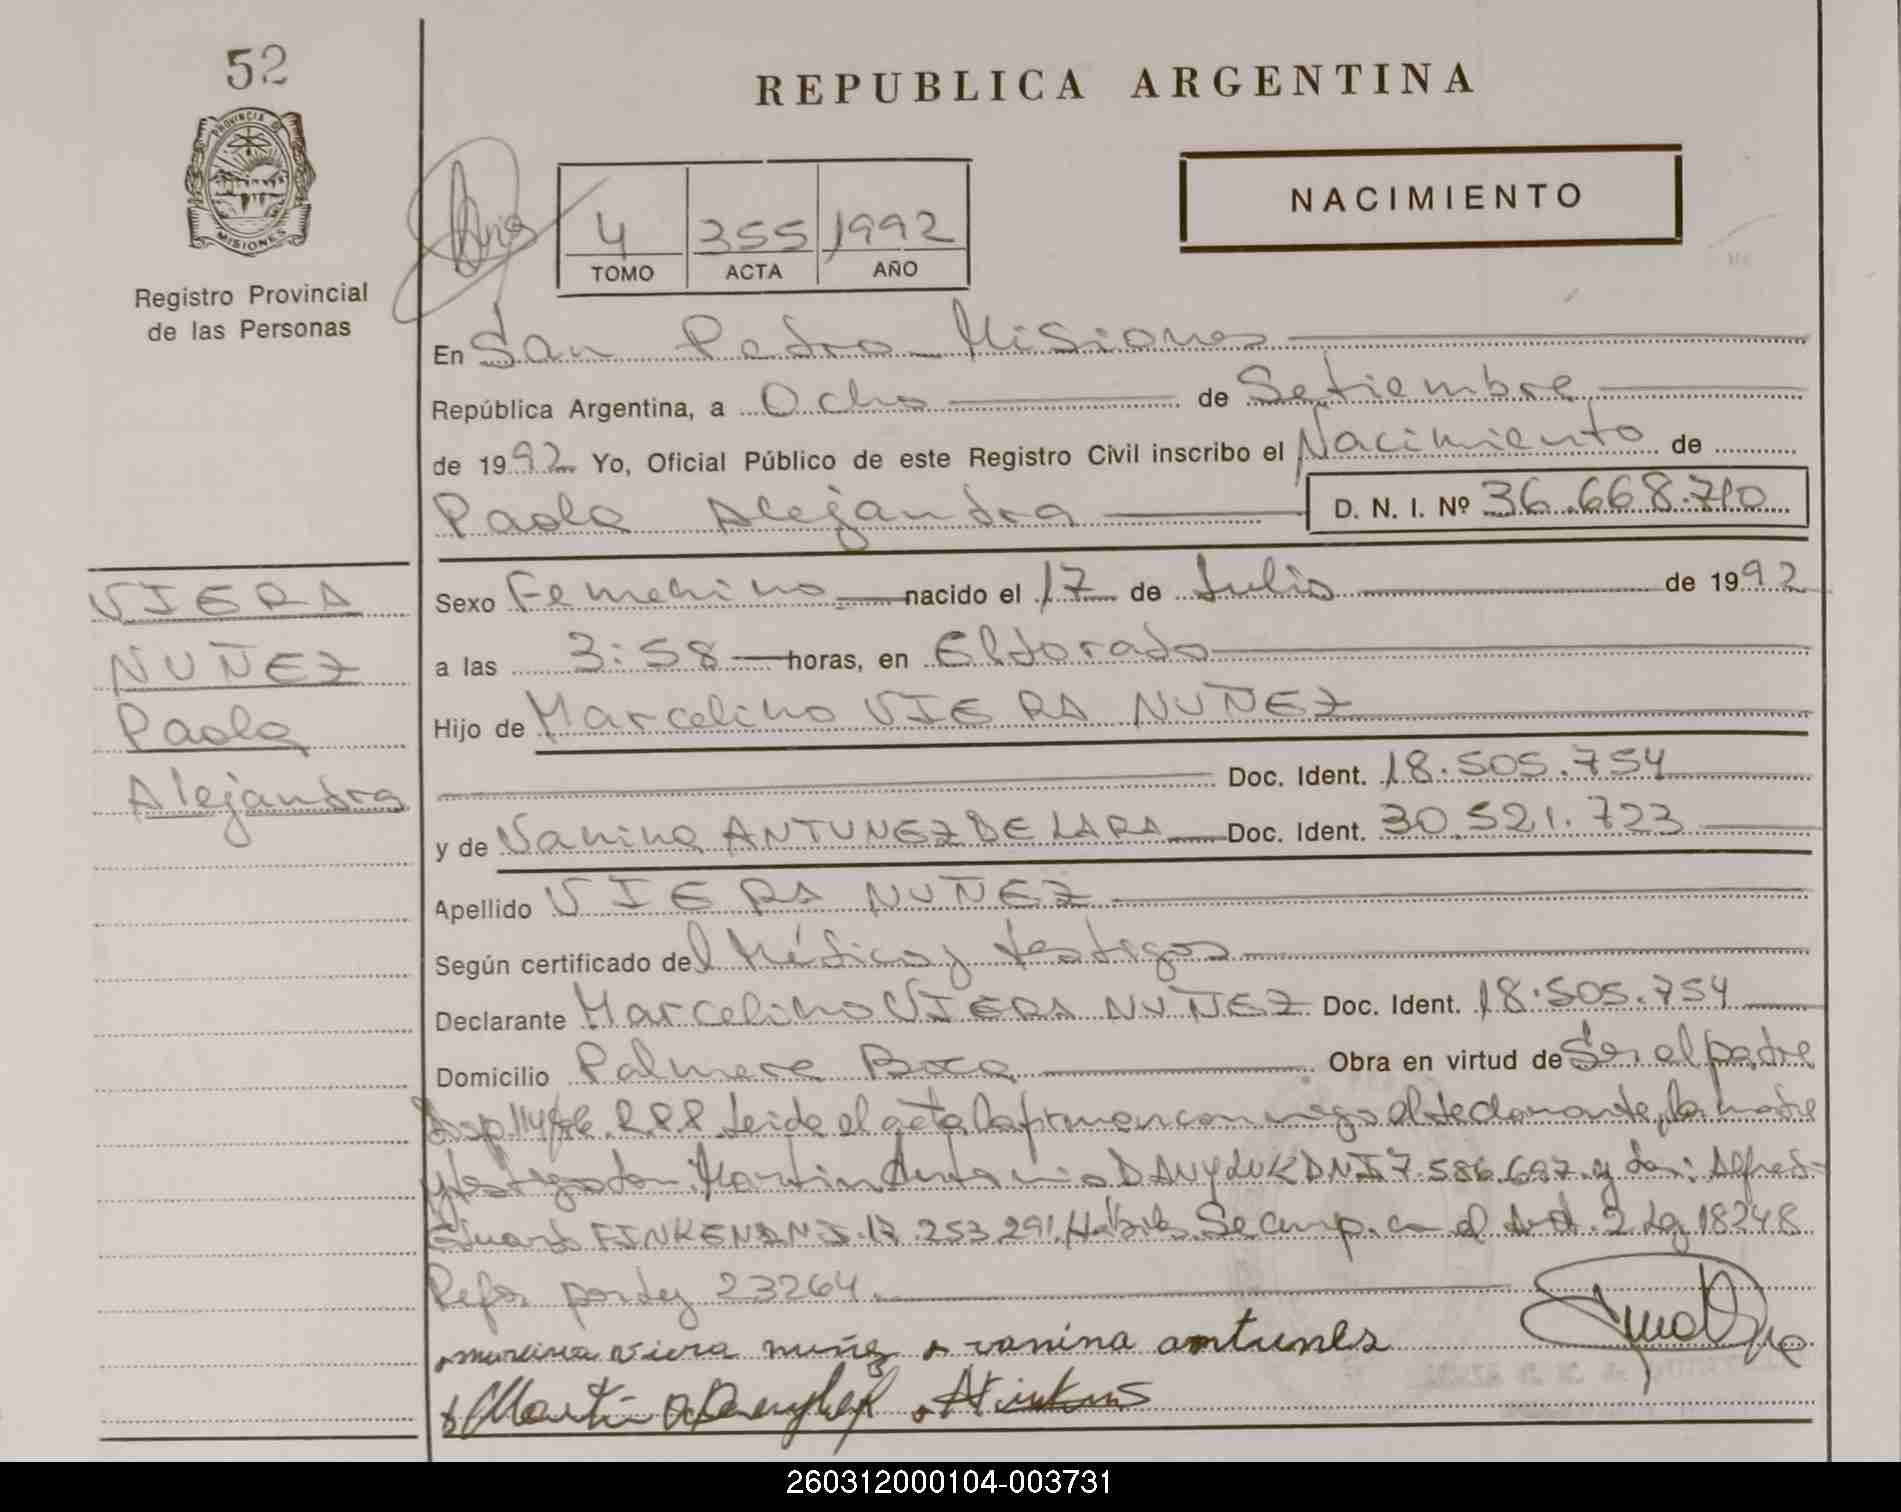 52
PROVINCIA DE
MISIONES
Registro Provincial
de las Personas
REPUBLICA ARGENTINA
NACIMIENTO
4 355 1992
TOMO ACTA AÑO
En San Pedro Misiones
República Argentina, a Ocho de Setiembre
de 1992 Yo, Oficial Público de este Registro Civil inscribo el Nacimiento de
Paola Alejandra D. N. I. Nº 36.668.710
VIERA
NUÑEZ
Paola
Alejandra
Sexo Femenino nacido el 17 de Julio de 1992
a las 3:58 horas, en Eldorado
Hijo de Marcelino VIERA NUÑEZ
Doc. Ident. 18.505.754
y de Vanina ANTUNEZ DE LARA Doc. Ident. 30.521.723
Apellido VIERA NUÑEZ
Según certificado del Médico y testigos
Declarante Marcelino VIERA NUÑEZ Doc. Ident. 18.505.754
Domicilio Palmera Boca Obra en virtud de Ser el padre
Disp. R.P.P. Leida el acta la firman conmigo el declarante, la madre
y testigos Don: Martin Antonio DANYLUK DNI 7.586.697 y don: Alfredo
Eduardo FINKEN DNI. 17.253.291. Hábiles. Se cump. con el Art. 2 Lg 18248
Refor por Ley 23264.
viera nuñez vanina antunes
Martin
260312000104-003731